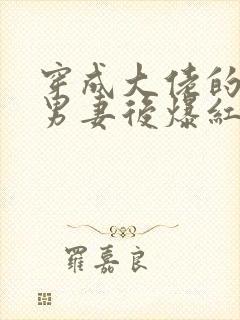 穿成大佬的
男妻後爆紅
羅嘉良